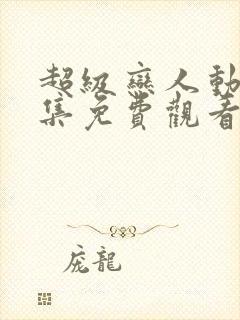 超級戀人動
集免費觀看
庞龍